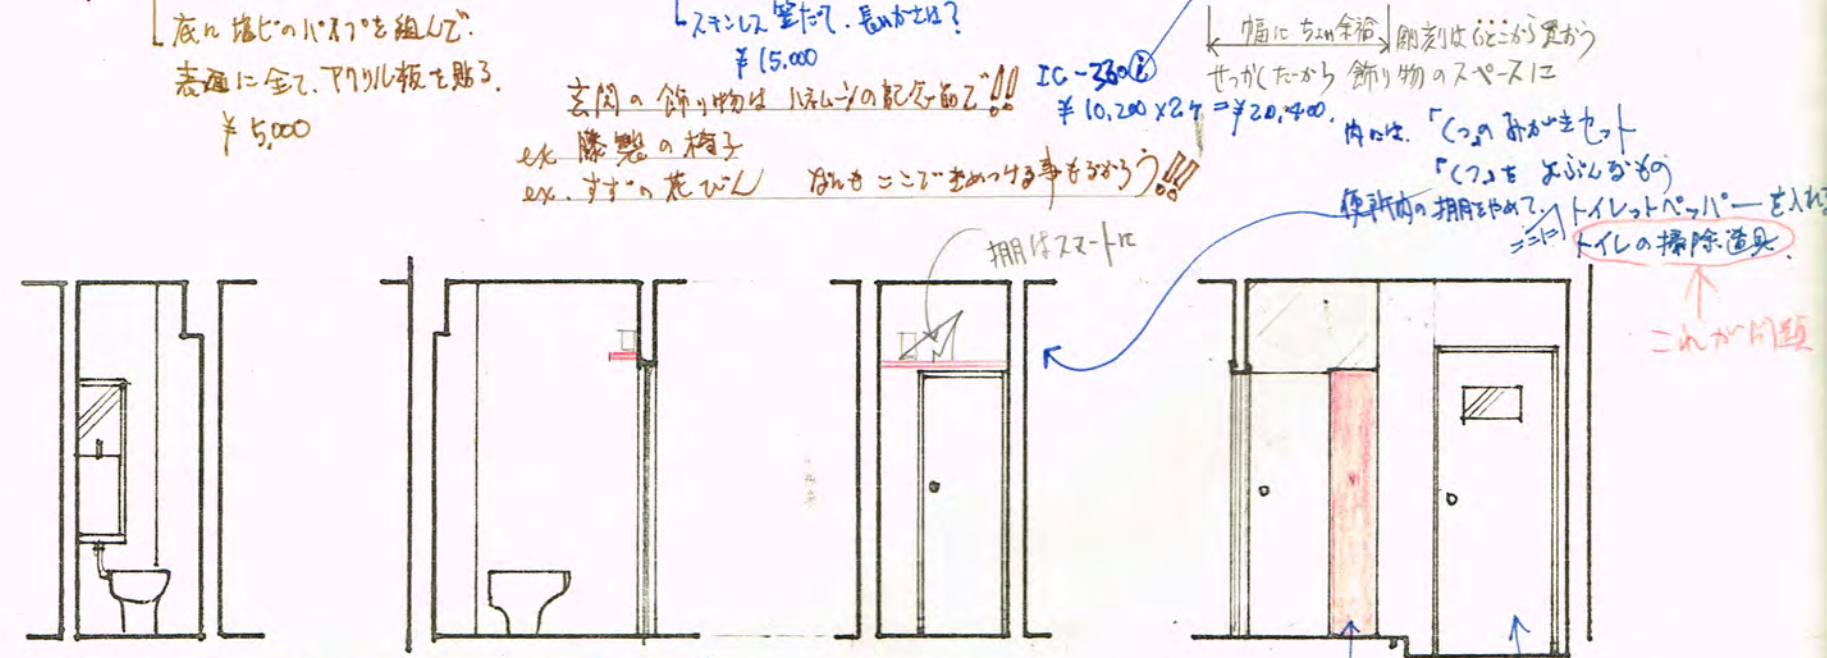 底に塩ビのパイプを組んで.
表面に全て、アクリル板を貼る.
¥5,000
ステンレス 笠たて. 長いかさは?
¥15,000
玄関の飾り物は ハネムーンの記念品で!!
ex 籐製の椅子
ex. すずの花びん なにも ここできめつける事もなかろう!!!
IC-330
¥10,200×2ケ=¥20,400.
幅に ちょい余裕 彫刻はどこから買おう
せっかくだから 飾り物のスペースに
内には. 「くつ」のみがきセット
「くつ」を
便所内の棚をやめて、 トイレットペーパーを入れる
ここに トイレの掃除道具.
これが問題
棚はスマートに